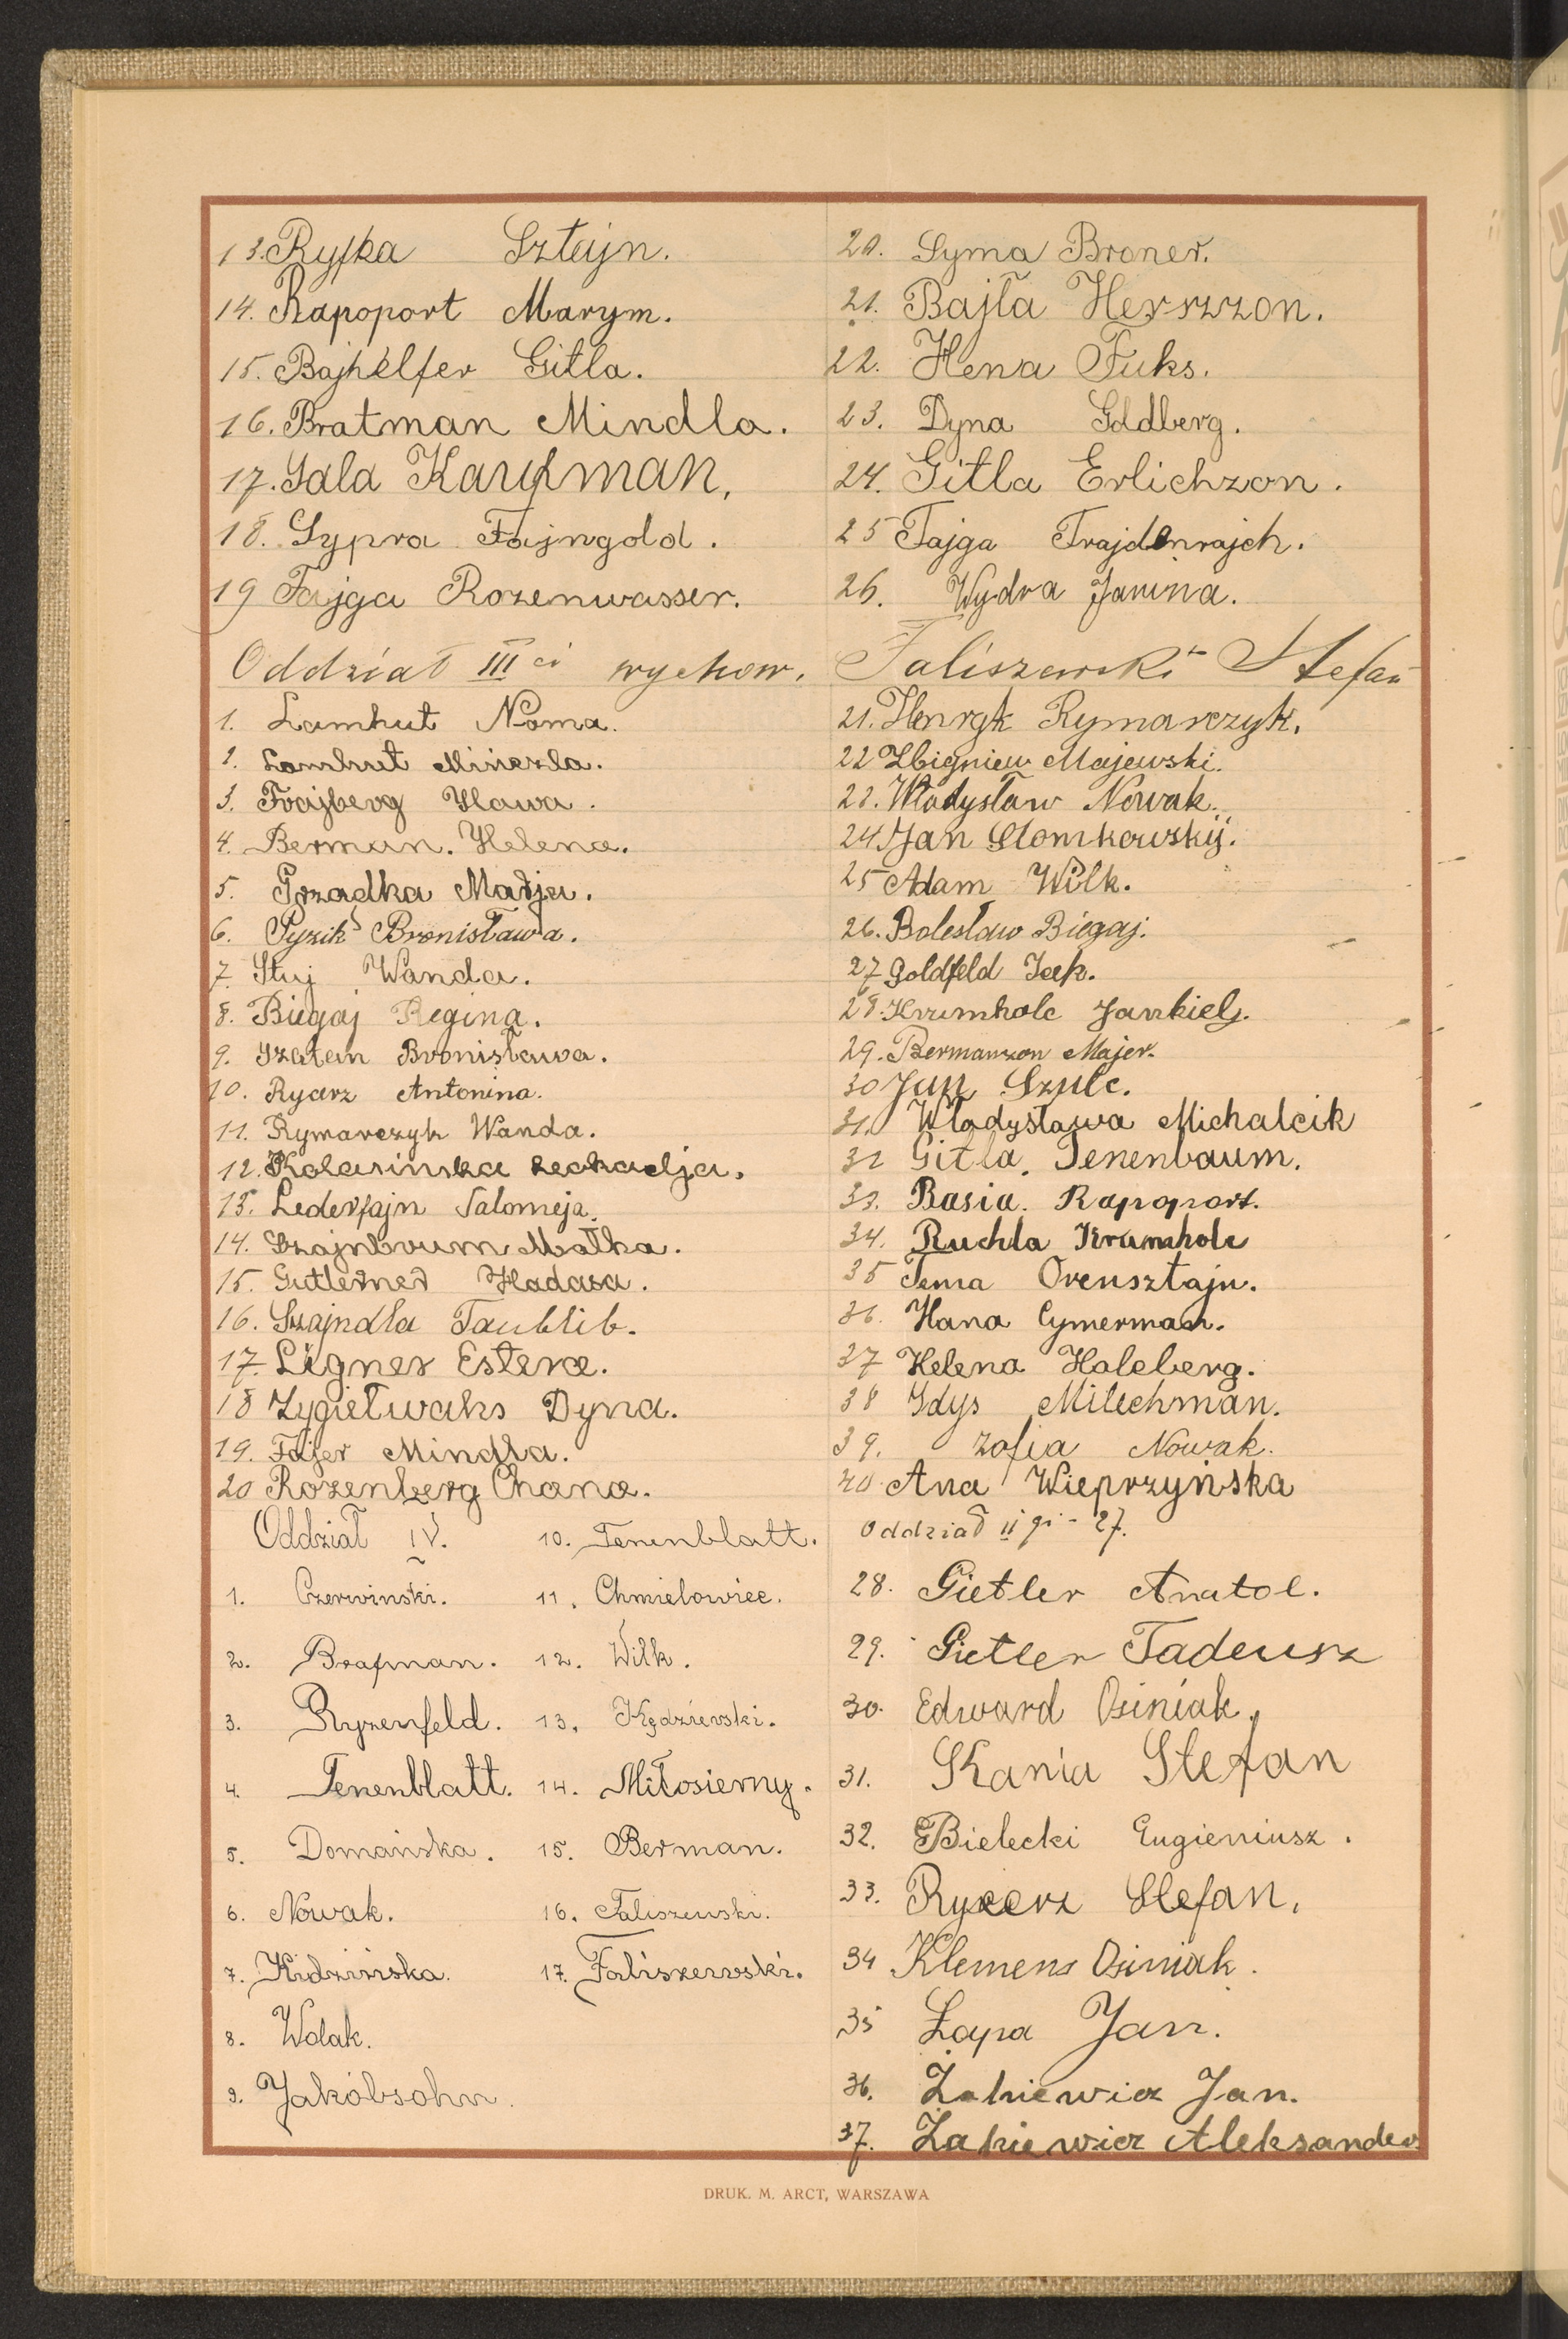 13. Ryfka Sztejn.
14. Rapoport Marym.
15. Bajhelfer Gitla.
16. Bratman Mindla.
17. Sala Kaufman,
18. Sypra Fajngold.
19 Fajga Rozenwasser.
20. Syma Broner.
21. Bajla Herszzon.
22. Hena Fuks.
23. Dyna Goldberg.
24. Gitla Erlichzon.
25 Fajga Frajdenrajch.
26. Wydra Janina.
Oddział III ci wychow. Faliszewski Stefan
1. Lamhut Noma.
2. Lamhut Miniezla.
3. Frajberg Hawa.
4. Berman. Helena.
5. Grzadka Marja.
6. Pyzik Bronisława.
7. Stuj Wanda.
8. Biegaj Regina.
9. Szatan Bronisława.
10. Rycerz Antonina.
11. Rymarczyk Wanda.
12. Kolasińska Leokadja.
13. Lederfajn Salomeja.
14. Szajnbrum Małka.
15. Gutlerner Hadasa.
16. Szajndla Taublib.
17. Ligner Estera.
18 Zygielwaks Dyna.
19. Fajfer Mindla.
20 Rozenberg Chana.
21. Henryk Rymarczyk.
22 Zbigniew Majewski.
23. Władysław Nowak.
24 Jan Słomkowskij.
25 Adam Wilk.
26. Bolesław Biegaj.
27 Goldfeld Icek.
28. Krumholc Jankiel.
29. Bermanzon Majer.
30 Jan Szulc.
31. Władysława Michalcik
32 Gitla. Tenenbaum.
33. Basia. Rapoport.
34. Ruchla Krumholc
35 Tema Orensztajn.
36. Hana Cymerman.
37 Helena Halcberg.
38 Idys Milechman.
39. Zofia Nowak.
40 Ana Wieprzyńska
Oddział IV.
1. Czerwiński.
2. Brafman.
3. Ryzenfeld.
4. Tenenblatt.
5. Domańska.
6. Nowak.
7. Kidzińska.
8. Wolak.
9. Jakóbsohn.
10. Tenenblatt.
11. Chmielowiec.
12. Wilk.
13. Kędzierski.
14. Miłosierny.
15. Berman.
16. Faliszewski.
17. Faliszewski.
Oddział II gi - 27.
28. Gietler Anatol.
29. Gietler Tadeusz
30. Edward Osiniak.
31. Kania Stefan
32. Bielecki Eugieniusz.
33. Rycerz Stefan.
34 Klemens Osiniak.
35 Łapa Jan.
36. Zakiewicz Jan.
37. Zakiewicz Aleksander
DRUK. M. ARCT, WARSZAWA